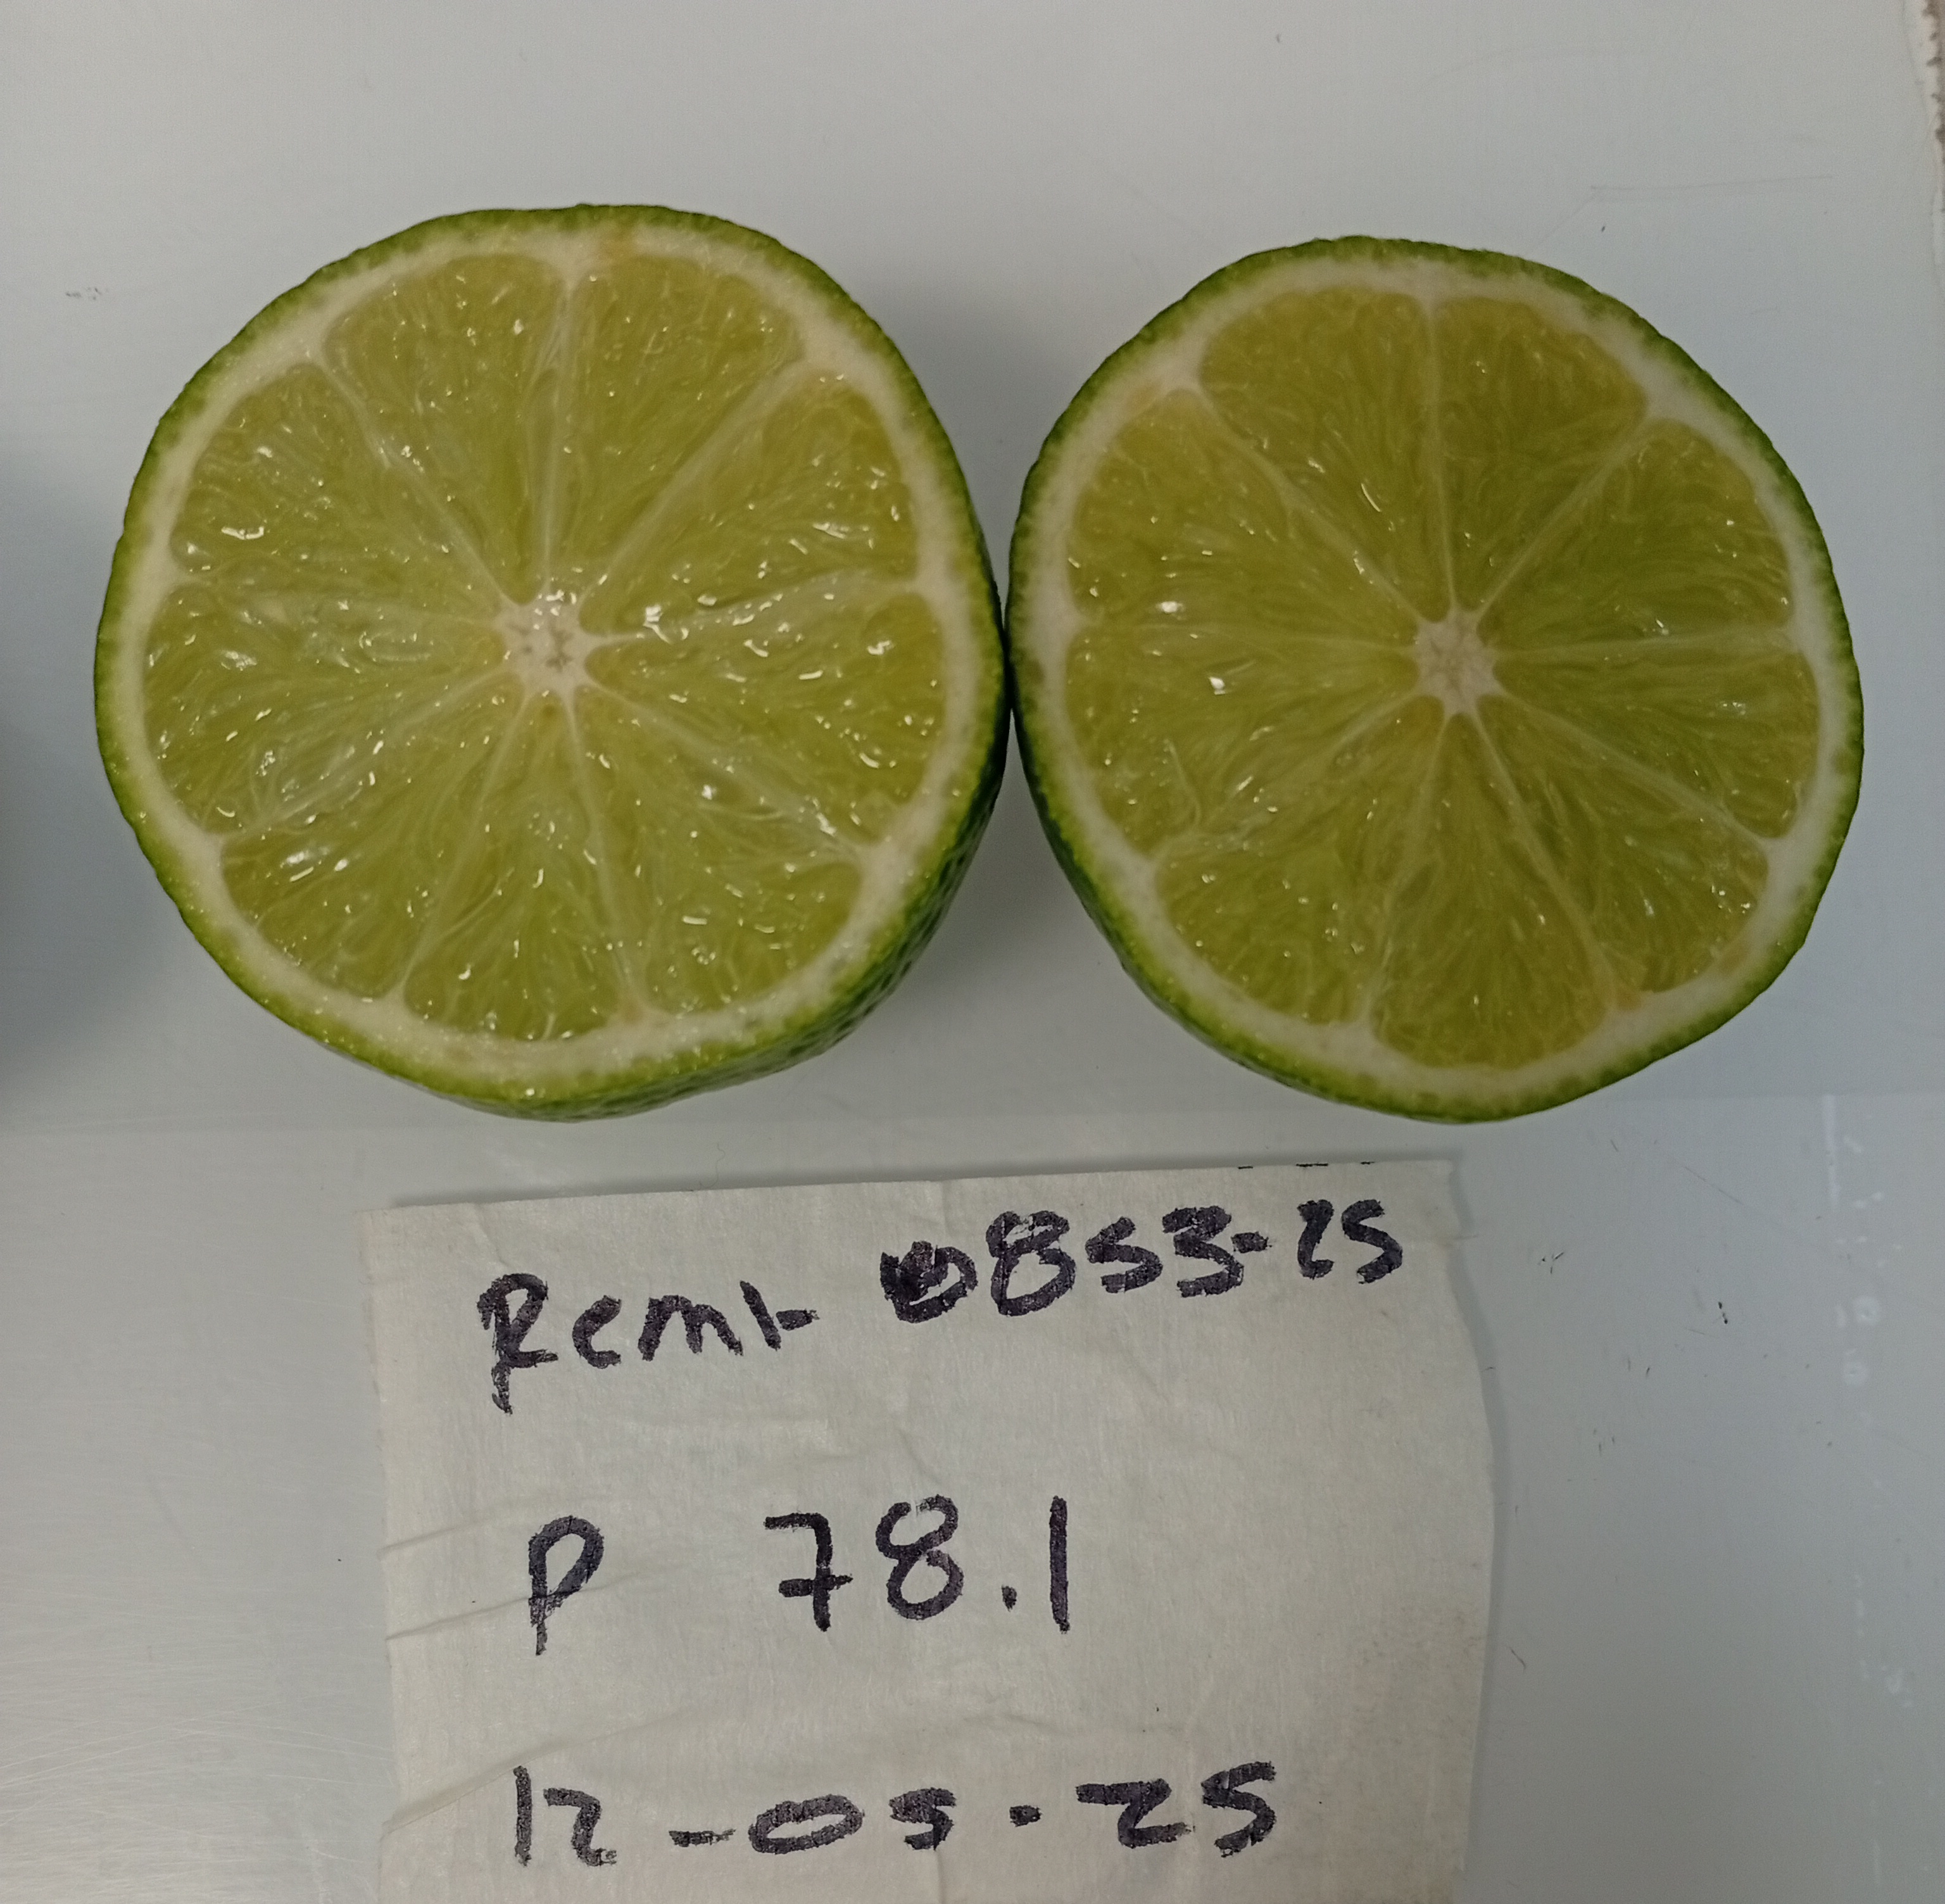 Remt 0853-25
P 78.1
12-05-25